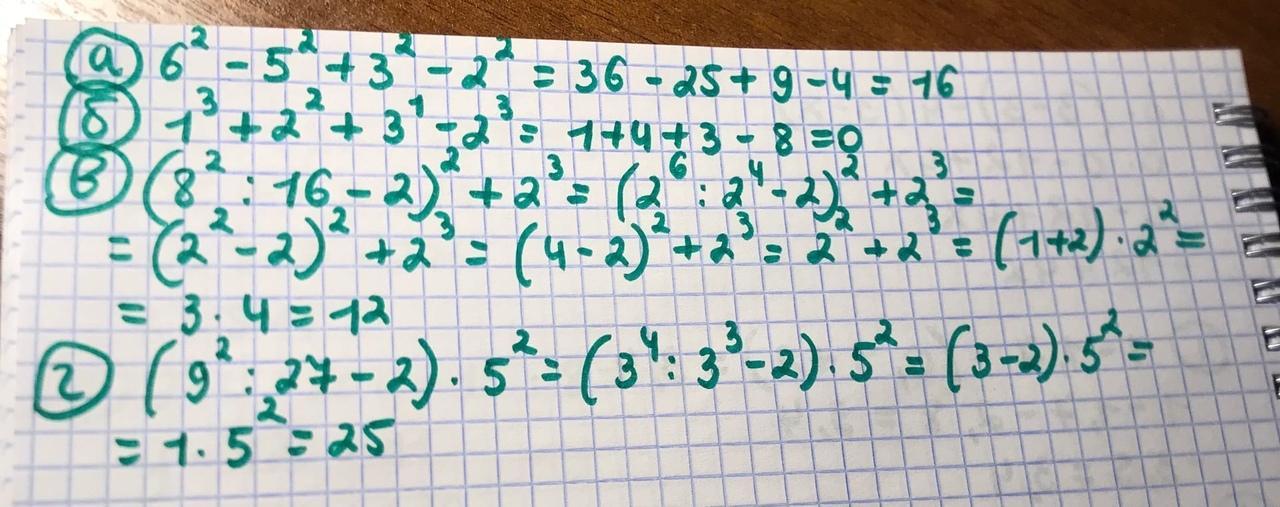 а) 6² - 5² + 3² - 2² = 36 - 25 + 9 - 4 = 16
б) 1³ + 2² + 3¹ - 2³ = 1 + 4 + 3 - 8 = 0
в) (8² : 16 - 2)² + 2³ = (2⁶ : 2⁴ - 2)² + 2³ =
= (2² - 2)² + 2³ = (4 - 2)² + 2³ = 2² + 2³ = (1 + 2) · 2² =
= 3 · 4 = 12
г) (9² : 27 - 2) · 5² = (3⁴ : 3³ - 2) · 5² = (3 - 2) · 5² =
= 1 · 5² = 25